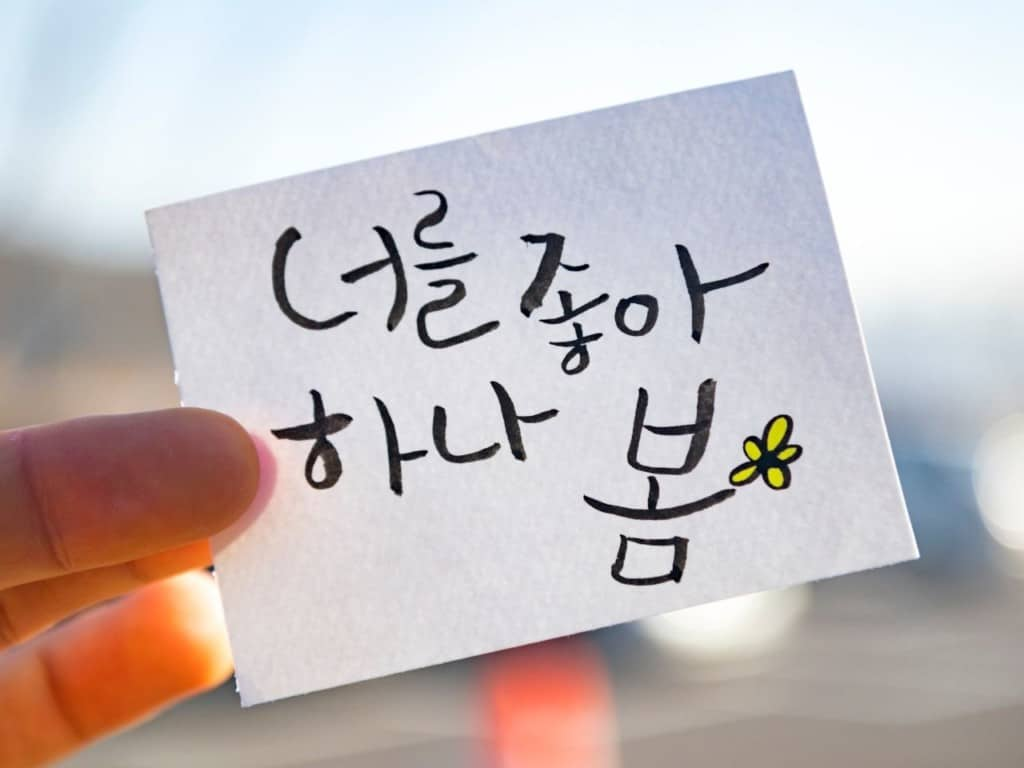 너를 좋아
하나 봄